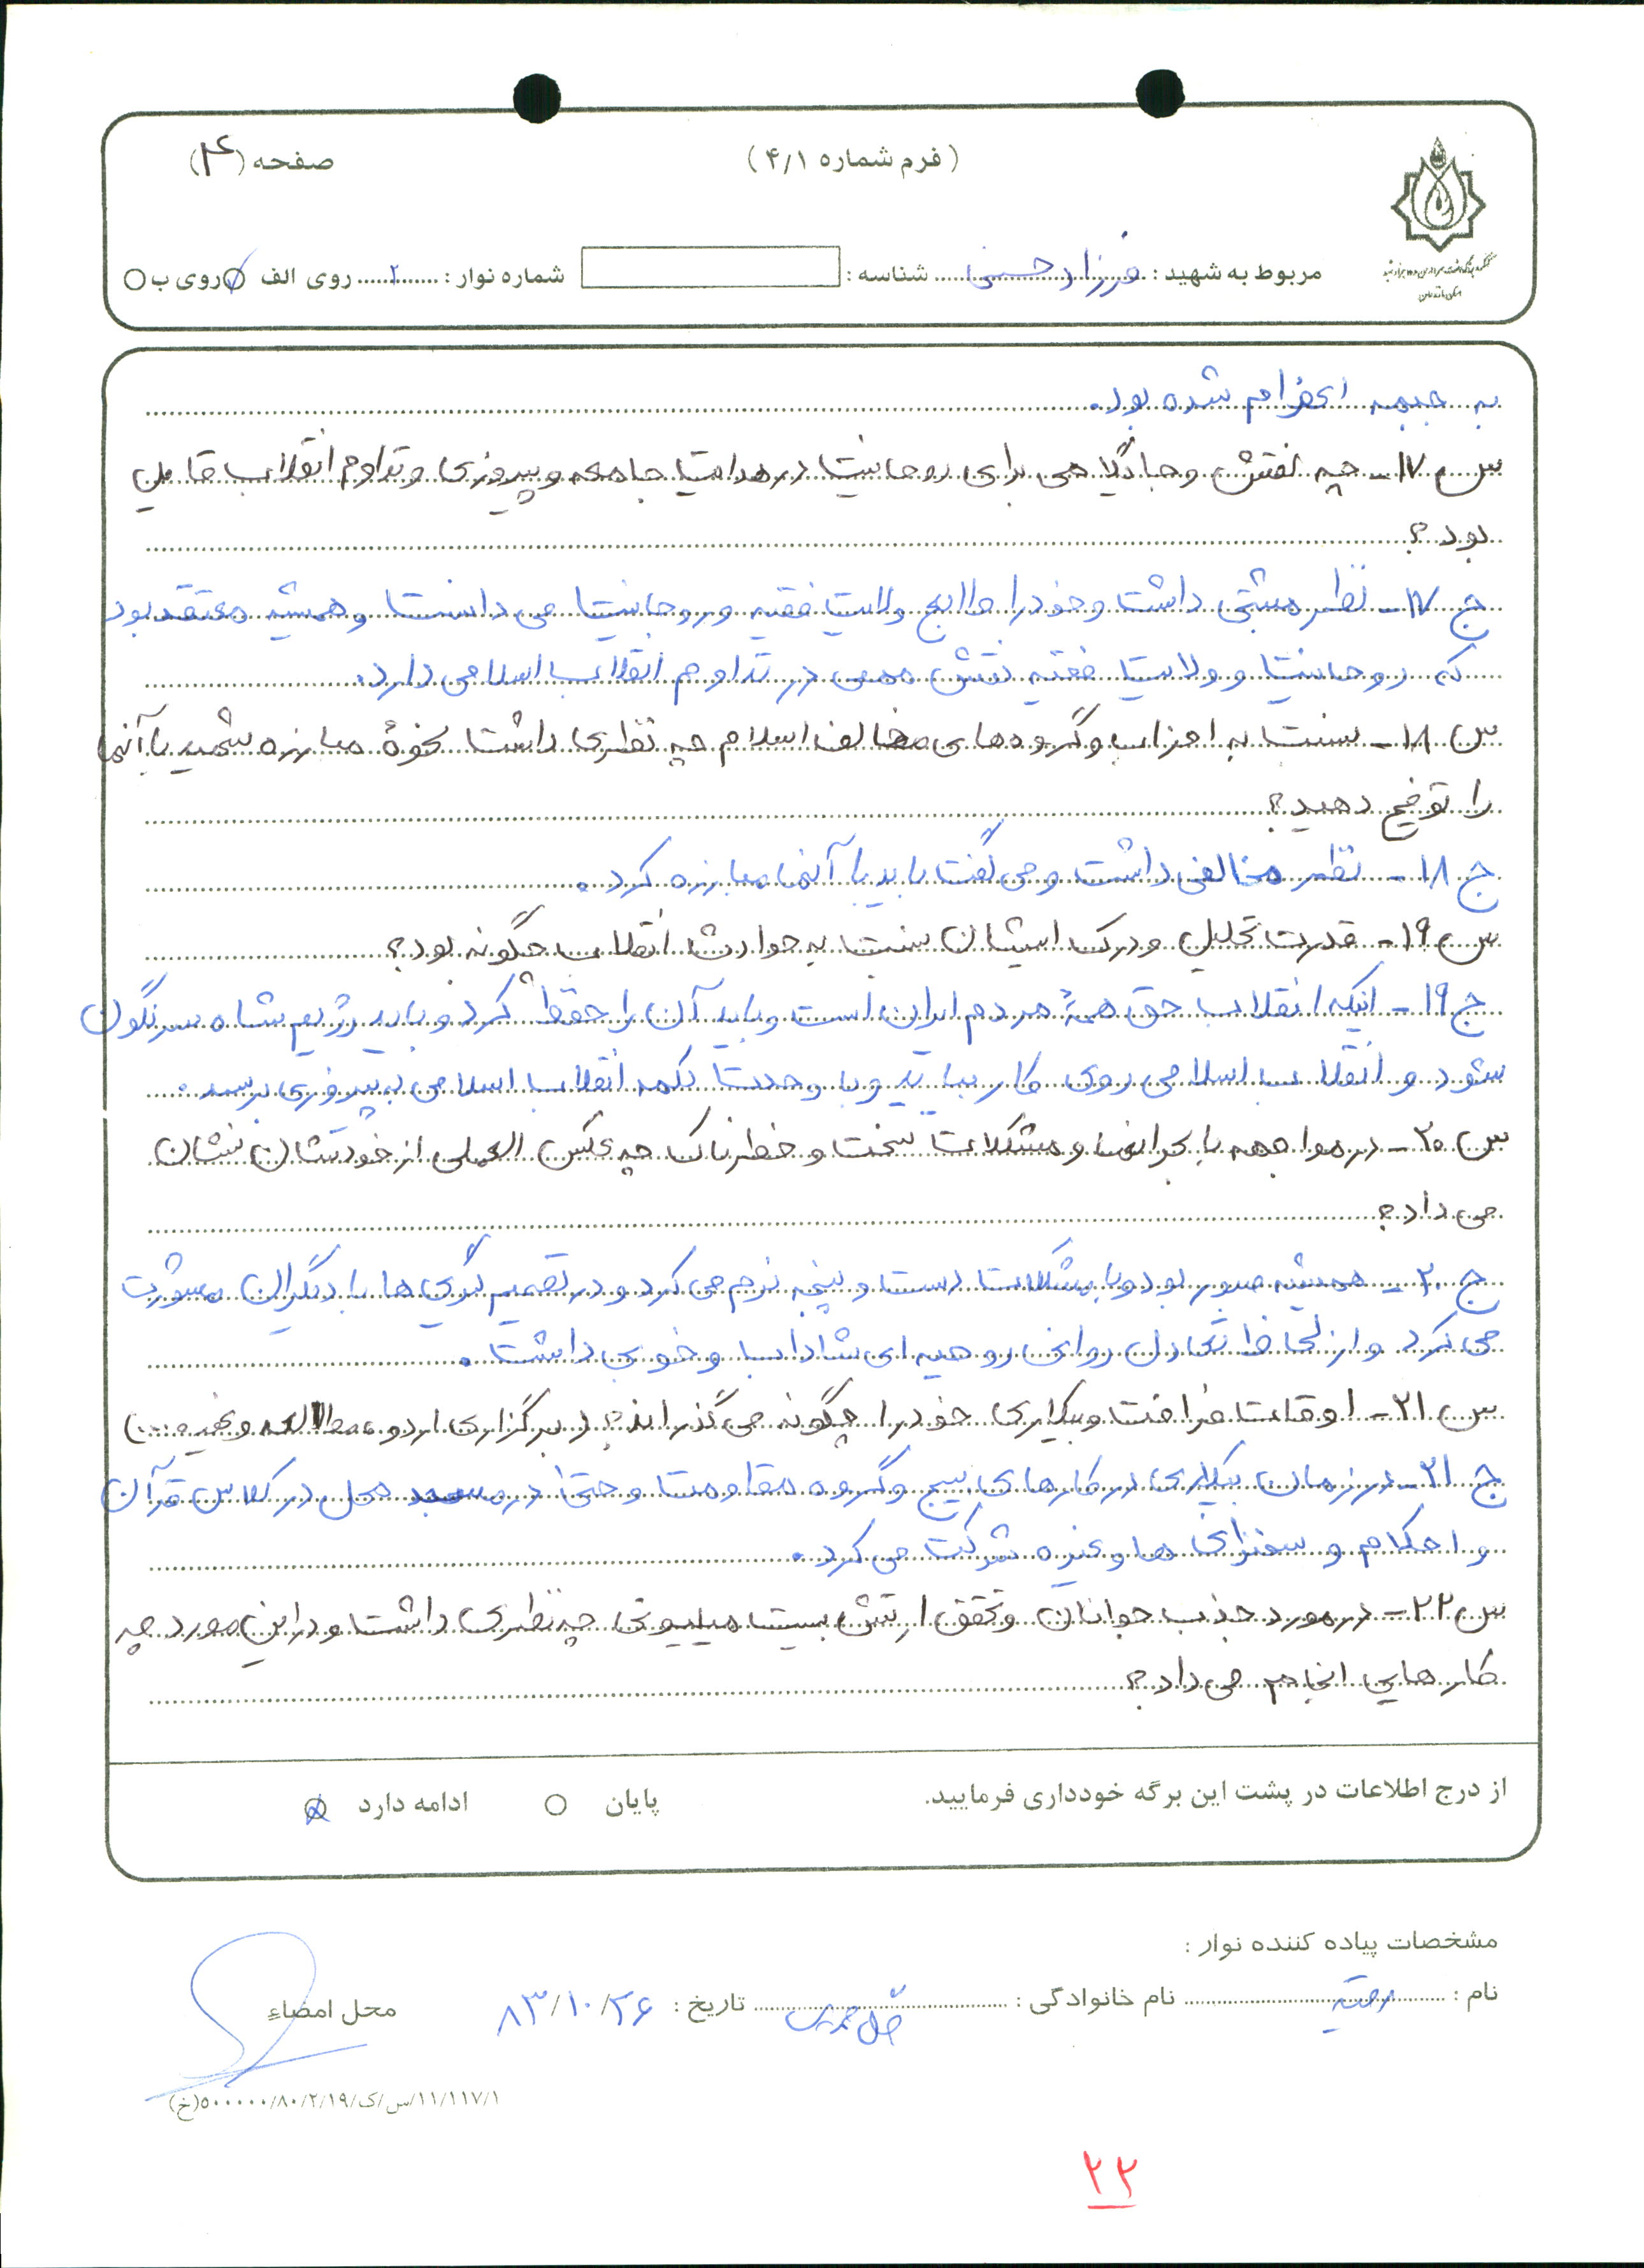 (فرم شماره ۴/۱)
صفحه (۴)
مربوط به شهید : فرزاد حسنی شناسه : شماره نوار : ۲ روی الف روی ب
به جبهه اعزام شده بود.
س ۱۷- چه نقش و جایگاهی برای روحانیت در هدایت جامعه و پیروزی و تداوم انقلاب قایل
بود؟
ج ۱۷- نظر مثبتی داشت و خود را تابع ولایت فقیه و روحانیت می دانست و همیشه معتقد بود
که روحانیت و ولایت فقیه نقش مهمی در تداوم انقلاب اسلامی دارد.
س ۱۸- نسبت به احزاب و گروه های مخالف اسلام چه نظری داشت نحوهٔ مبارزه شهید با آنها
را توضیح دهید؟
ج ۱۸- نظر مخالفی داشت و می گفت باید با آنها مبارزه کرد.
س ۱۹- قدرت تحلیل و درک ایشان نسبت به حوادث انقلاب چگونه بود؟
ج ۱۹- اینکه انقلاب حق همهٔ مردم ایران است و باید آن را حفظ کرد و باید رژیم شاه سرنگون
شود و انقلاب اسلامی روی کار بیاید و با وحدت کلمه انقلاب اسلامی به پیروزی برسد.
س ۲۰- در مواجهه با بحرانها و مشکلات سخت و خطرناک چه عکس العملی از خودشان نشان
می داد؟
ج ۲۰- همیشه صبور بود و با مشکلات دست و پنجه نرم می کرد و در تصمیم گیری ها با دیگران مشورت
می کرد و از لحاظ تعادل روانی روحیه ای شاداب و خوبی داشت.
س ۲۱- اوقات فراغت و بیکاری خود را چگونه می گذراند؟ (برگزاری اردو، مطالعه و غیره...)
ج ۲۱- در زمان بیکاری در کارهای بسیج و گروه مقاومت و حتی در مسجد محل در کلاس قرآن
و احکام و سخنرانی ها و غیره شرکت می کرد.
س ۲۲- در مورد جذب جوانان و تحقق ارتش بیست میلیونی چه نظری داشت و در این مورد چه
کارهایی انجام می داد؟
از درج اطلاعات در پشت این برگه خودداری فرمایید.
پایان ادامه دارد
مشخصات پیاده کننده نوار :
نام : رقیه نام خانوادگی : تاریخ : ۸۳/۱۰/۲۶ محل امضاء
۱۱/۱۱۷/۱/س/ک/۵۰۰۰۰۰/۸۰/۲/۱۹(خ)
۲۳